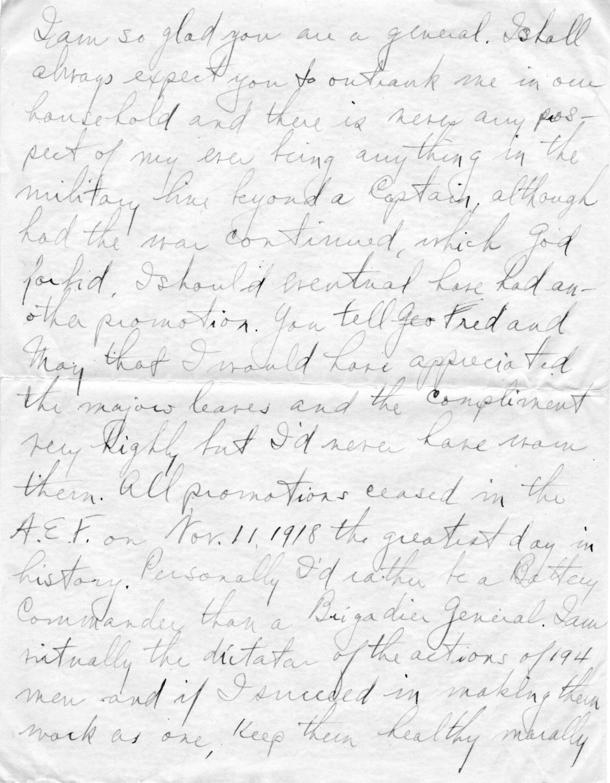 I am so glad you are a general. I shall
always expect you to outrank me in our
household and there is never any pos-
pect of my ever being anything in the
military line beyond a Captain, although
had the war continued, which God
forbid, I should eventual have had an-
other promotion. You tell Geo Fred and
May that I would have appreciated
the majors leaves and the compliment
very highly but I'd never have worn
them. All promotions ceased in the
A.E.F. on Nov. 11, 1918 the greatest day in
history. Personally I'd rather be a Battery
Commander than a Brigadier General. I am
virtually the dictator of the actions of 194
men and if I succeed in making them
work as one, keep them healthy morally